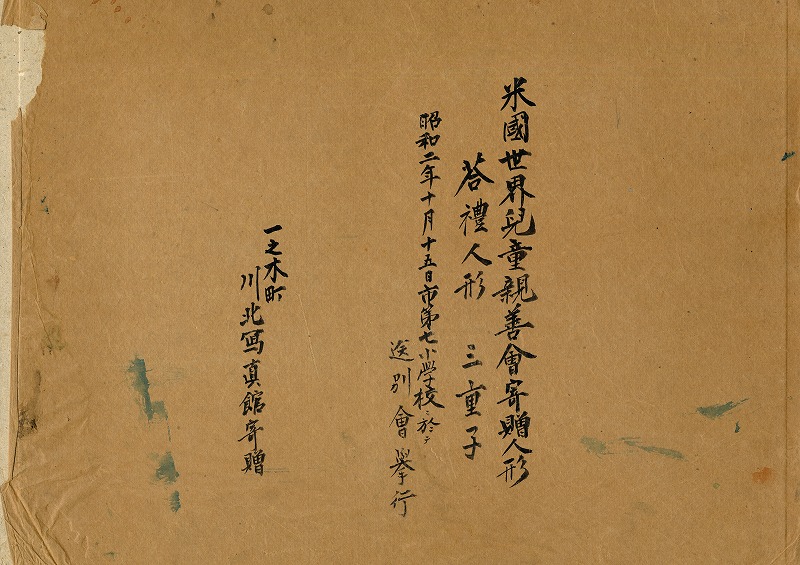 米國世界兒童親善會寄贈人形
答禮人形 三重子
昭和二年十月十五日市第七小學校ニ於テ
送別會擧行
一之木町
川北寫真館寄贈